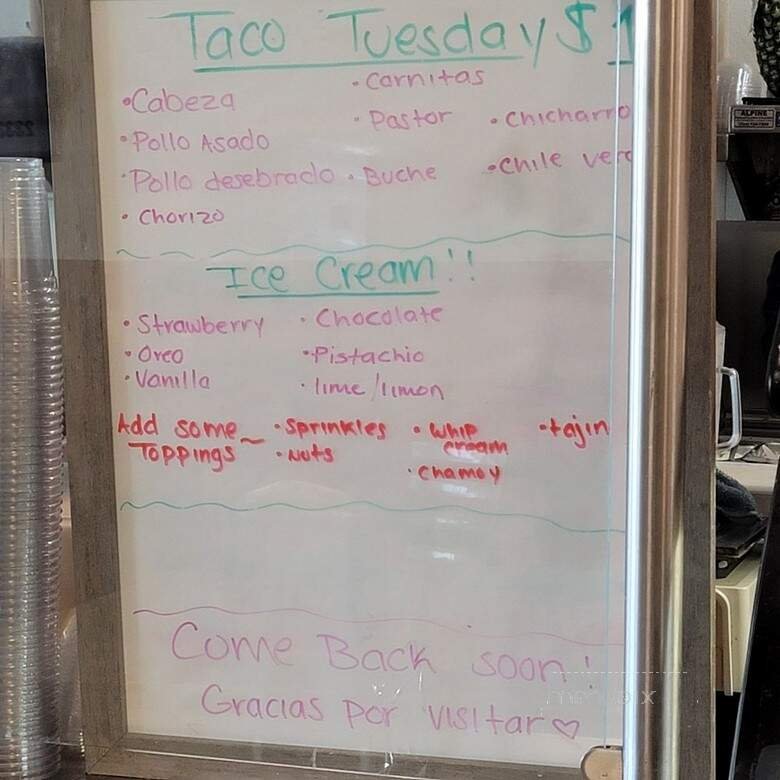 Taco Tuesday $1
• Cabeza
• Pollo Asado
• Pollo desebrado
• Chorizo
• Carnitas
• Pastor
• Buche
• Chicharro
• Chile verd
Ice Cream!!
• Strawberry
• Oreo
• Vanilla
• Chocolate
• Pistachio
• lime/limon
Add some
Toppings ~
• Sprinkles
• Nuts
• Whip
cream
• Chamoy
• tajin
Come Back soon!
Gracias por visitar ♡
ALPINE